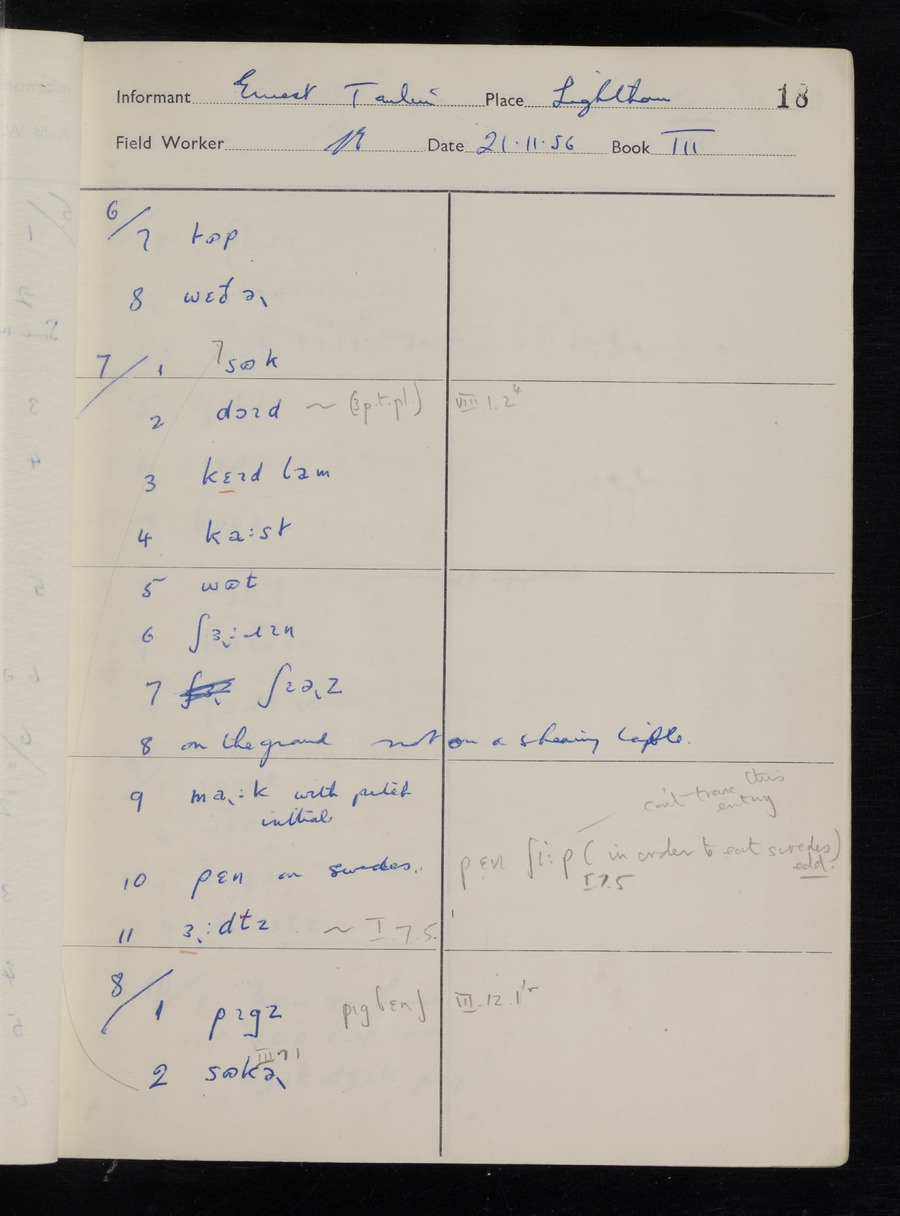 Informant Ernest Place Lighthorne 18
Field Worker Date 21·11·56 Book III
6/7 tɷp
8 wɛðə˞
7/1 7 sɷk
2 dɔɪd ~ (3 p.t.pl.) VIII 1.2⁴
3 kɛɪd lam
4 ka:st
5 wɷt
6 ʃɜ˞:ɹɪn
7 ʃɪə˞z
8 on the ground not on a shearing table.
9 ma˞:k with pitch
initial
can't trace this
entry
10 pɛn on swedes. pɛn ʃi:p (in order to eat swedes)
I 7.5 add.
11 ɜ˞:dtz ~ I.7.5.
8/1 pɪgz pɪg III.12.1
2 sɷkə˞ III 7 1